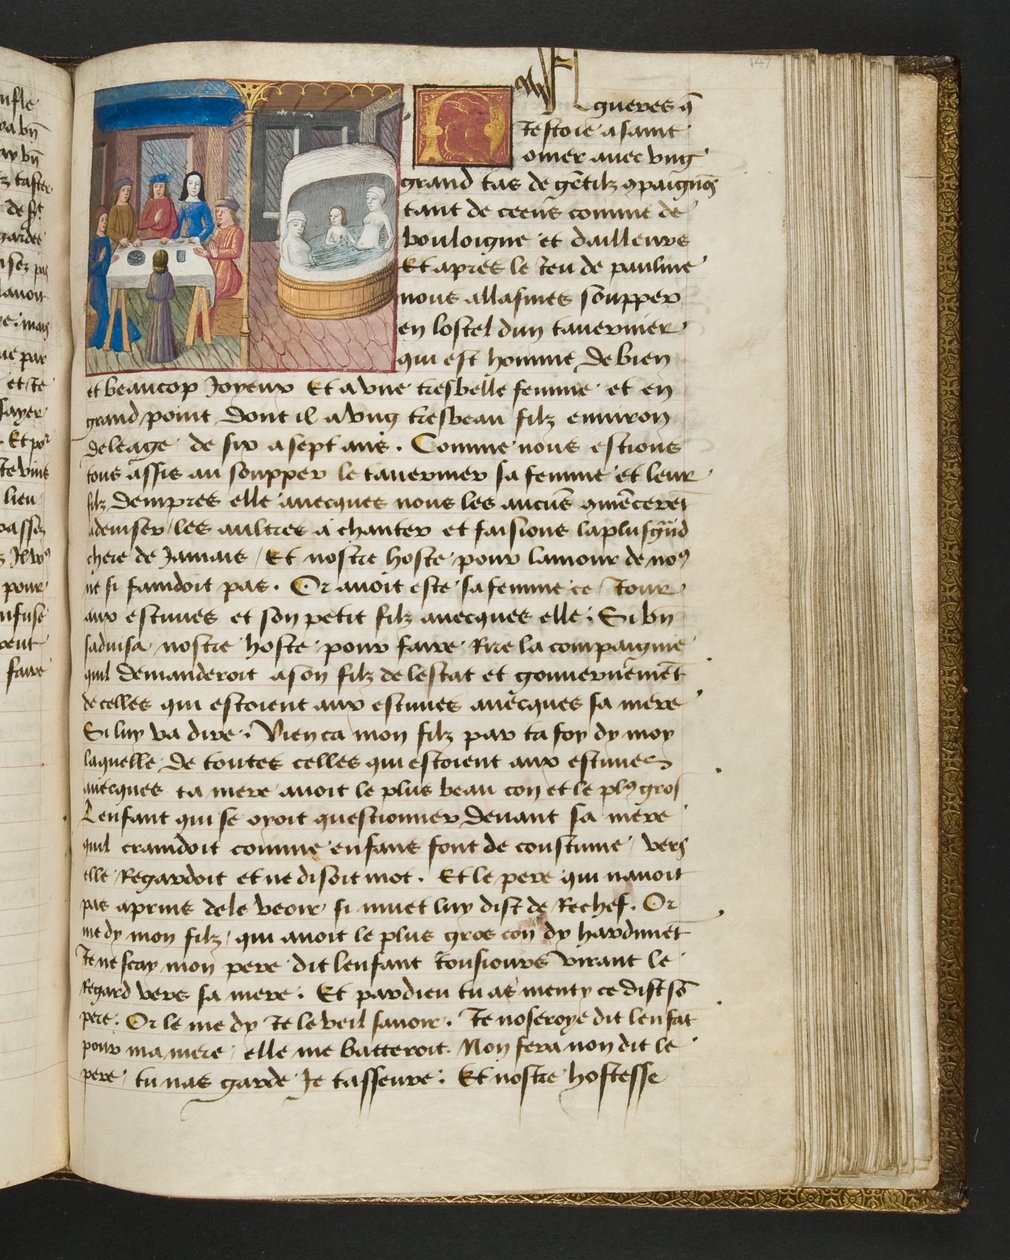 nfle
va bñ
ay bñ
garde
auoit
ne par
et te
sayer
Et por
lieu
passez
pour
vent
faire
147
N a gueres q̃
Jestoie a saint
omer auec vng
grand tas de gẽtilz ꝯpaignõs
tant de ceens comme de
bouloigne et dailleurs
Et apres le Jeu de paulme
nous allasmes soupper
en lostel dun tauernier
qui est homme de bien
et beaucop Joyeux Et a vne tresbelle femme et en
grand point Dont il a vng tresbeau filz enuiron
de leage de six a sept ans . Comme nous estions
tous assis au soupper le tauernier sa femme et leur
filz dempres elle auecques nous les aucũs ꝯmẽcerẽt
a deuiser / les aultres a chanter et faisions la plus grãd
chere de Jamais / Et nostre hoste pour lamour de noꝰ
ne si faindoit pas . Or auoit este sa femme ce Jour
aux estuues et son petit filz auecques elle ; Si bn
saduisa nostre hoste pour faire Rire la compaignie
quil demanderoit a son filz de lestat et gouuernemẽt
de celles qui estoient aux estuues auecques sa mere
Si luy va dire . Vien ca mon filz par ta foy dy moy
laquelle de toutes celles qui estoient aux estuues
auecques ta mere auoit le plus beau con et le plꝰ gros
Lenfant qui se oyoit questionner Deuant sa mere
quil craindoit comme enfans font de coustume / vers
elle Regardoit et ne disoit mot . Et le pere qui nauoit
pas aprins de le veoir si muet luy dist de Rechef . Or
me dy mon filz / qui auoit le plus gros con dy hardiment
Je ne scay mon pere dit lenfant tousiours virant le
Regard vers sa mere . Et par dieu tu as menty ce dist sõ
pere . Or le me dy Je le veil sauoir . Je noseroye dit lenfãt
pour ma mere / elle me batteroit . Non fera non dit le
pere / tu nas garde Je tasseure . Et nostre hostesse